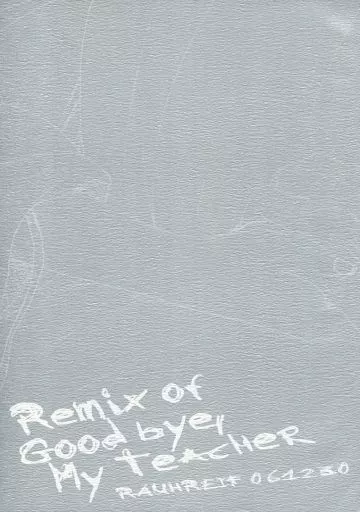 Remix of
Good bye,
My TeacHeR
RAUHREIF 061230